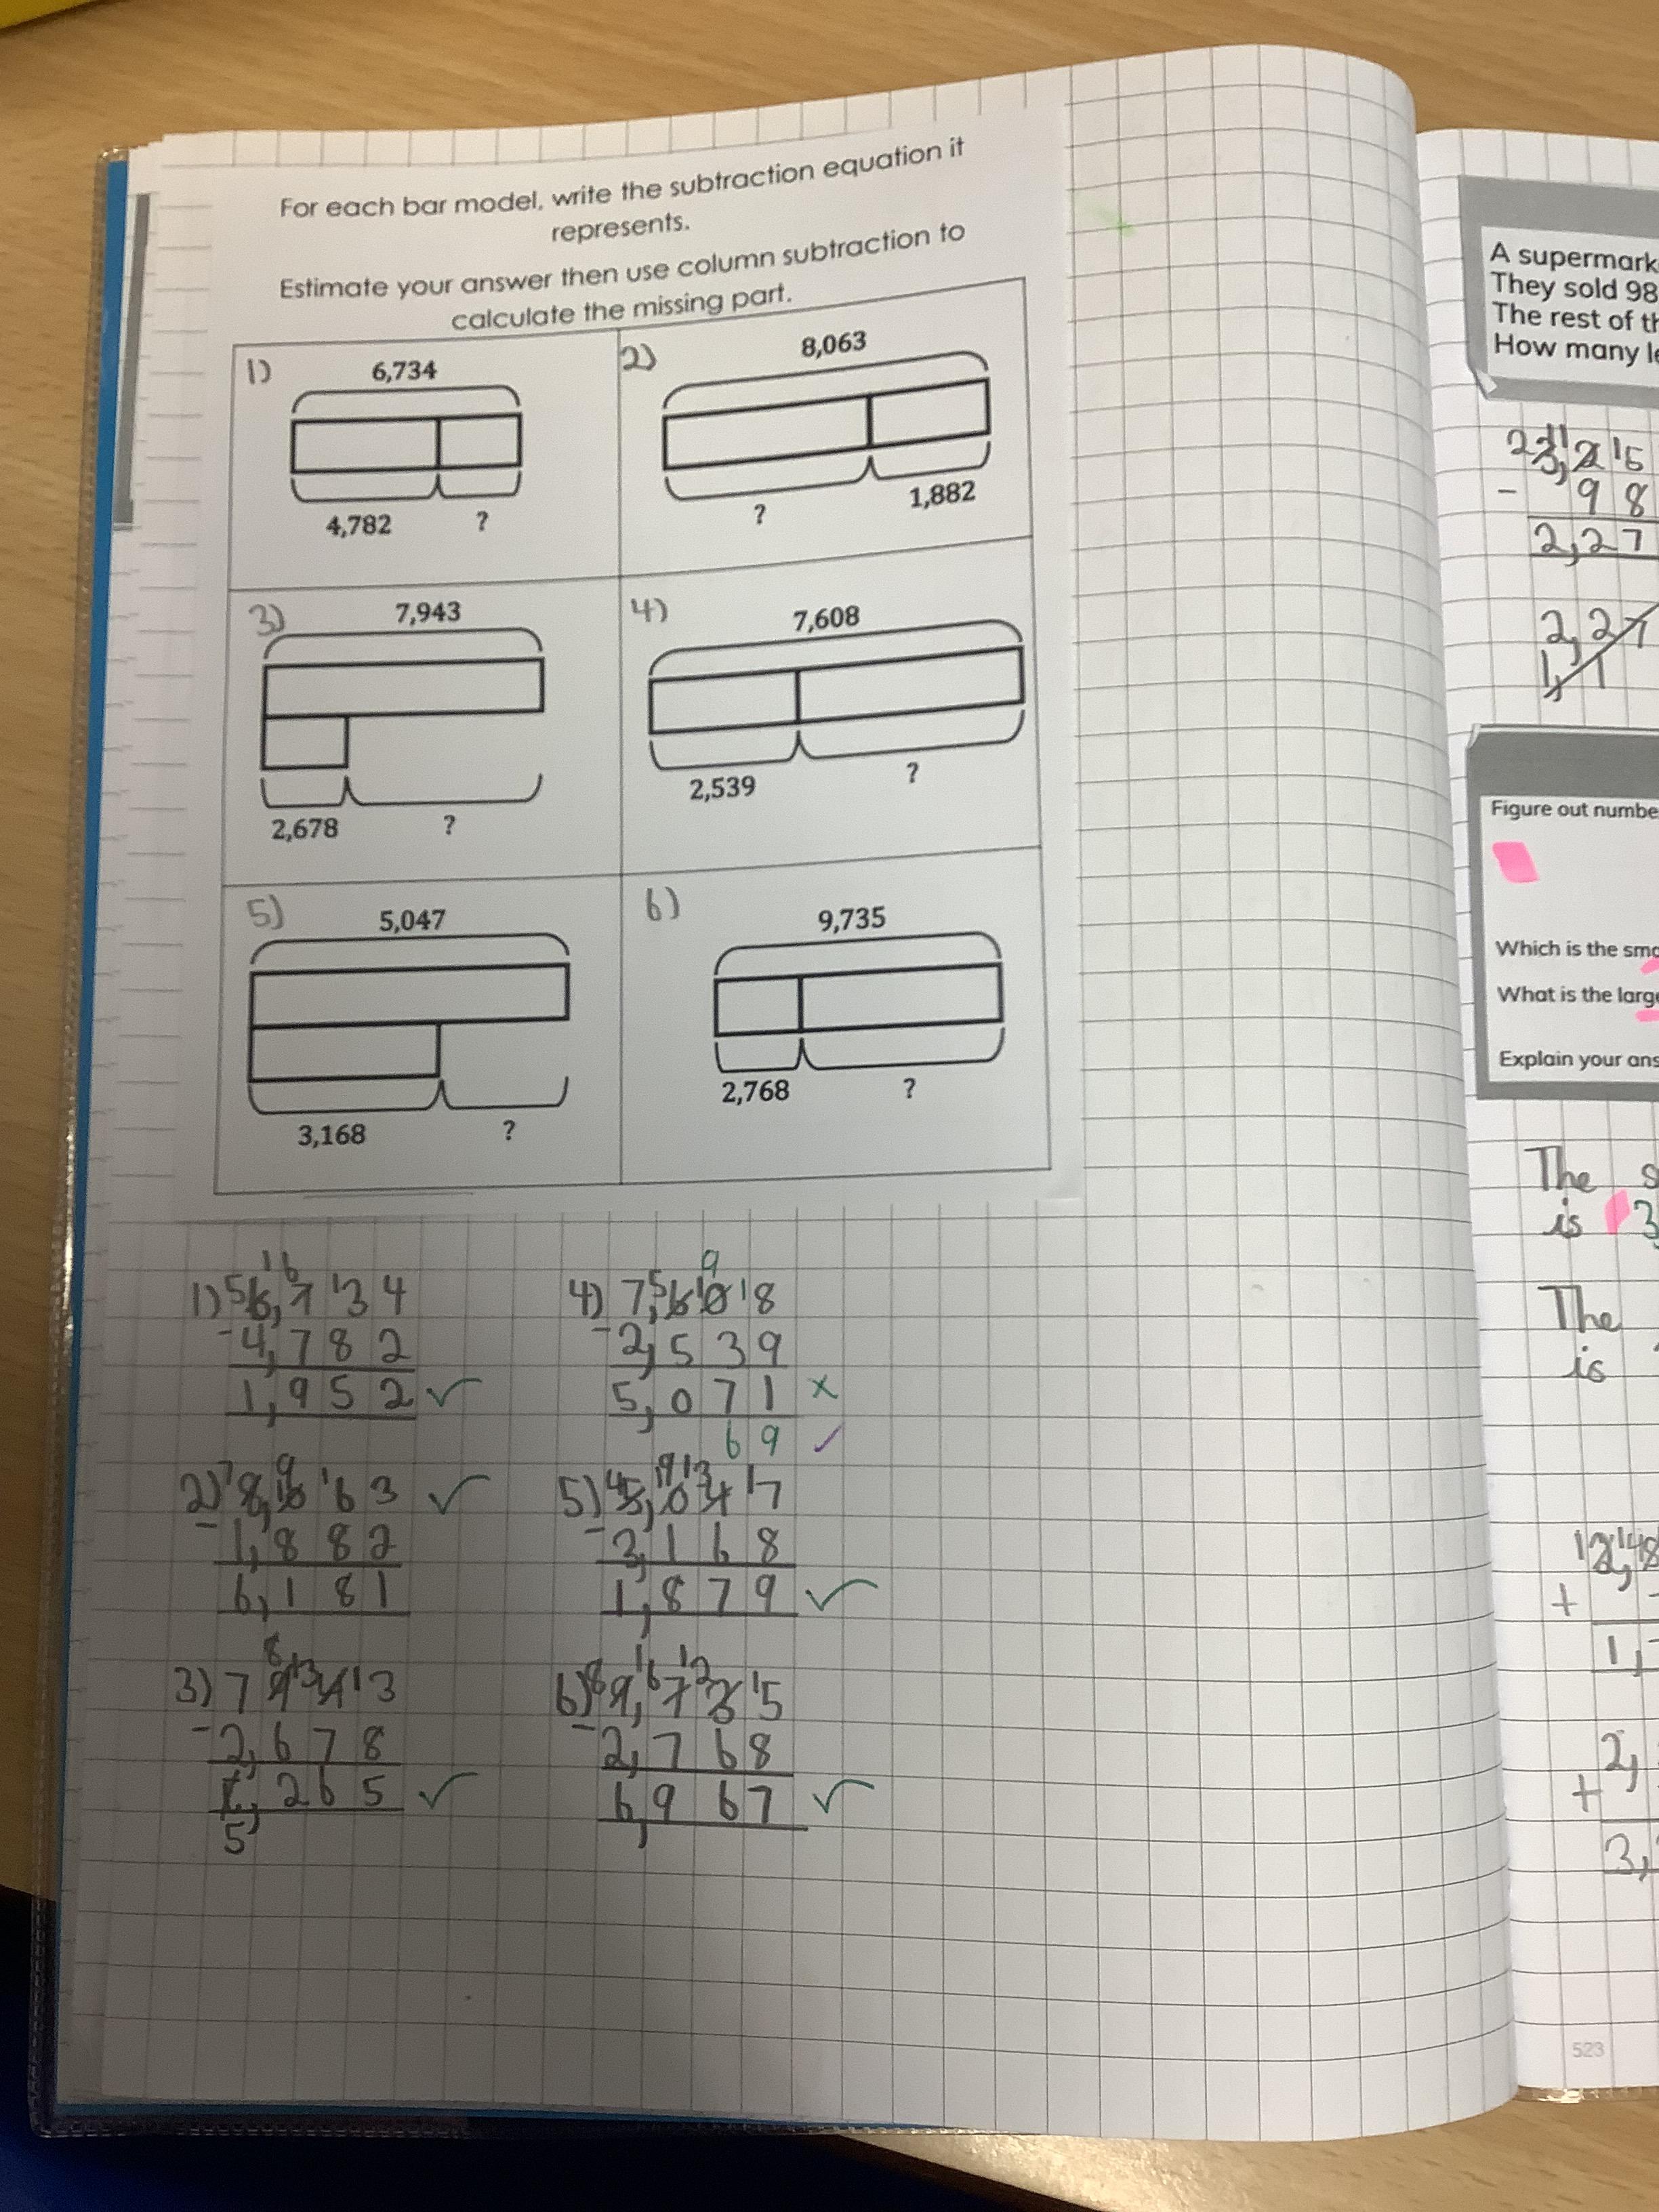 For each bar model, write the subtraction equation it
represents.
Estimate your answer then use column subtraction to
calculate the missing part.
1)
6,734
4,782 ?
2)
8,063
? 1,882
3)
7,943
2,678 ?
4)
7,608
2,539 ?
5)
5,047
3,168 ?
6)
9,735
2,768 ?
1) 5 6, 16 7 13 4
- 4, 7 8 2
1, 9 5 2 ✓
2) 7 8, 9 10 16 3 ✓
- 1, 8 8 2
6, 1 8 1
3) 7 8 9 13 4 13
- 2, 6 7 8
, 2 6 5 ✓
5
9
4) 7, 5 6 10 18
- 2, 5 3 9
5, 0 7 1 x
6 9 ✓
5) 4 5, 19 0 13 4 17
- 3, 1 6 8
1, 8 7 9 ✓
6) 8 9, 16 7 12 3 15
- 2, 7 6 8
6, 9 6 7 ✓
A supermark
They sold 98
The rest of th
How many le
2 3, 11 2 15
- 9 8
2, 2 7
2, 2 7
1, 1
Figure out numbe
Which is the sma
What is the large
Explain your ans
The s
is 3
The
is
12, 148
+
1,
2,
+
3,
523